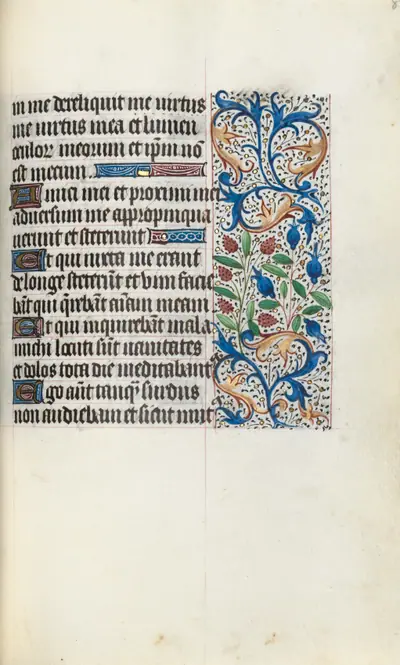 m me dereliquit me uirtus
me uirtus mea et lumen
oculoꝝ meorum et ip̄m nō
est mecum
Amici mei et proximi mei
aduersum me appropinqua
uerunt et steterunt
Et qui iuxta me erant
de longe steterūt et uim facie
bāt qui q̄rebāt aīam meam
Et qui inquirebāt mala
michi locuti sūt uanitates
et dolos tota die meditabant᷑
Ego aūt tanq̄ surdus
non audiebam et sicut mut᷒